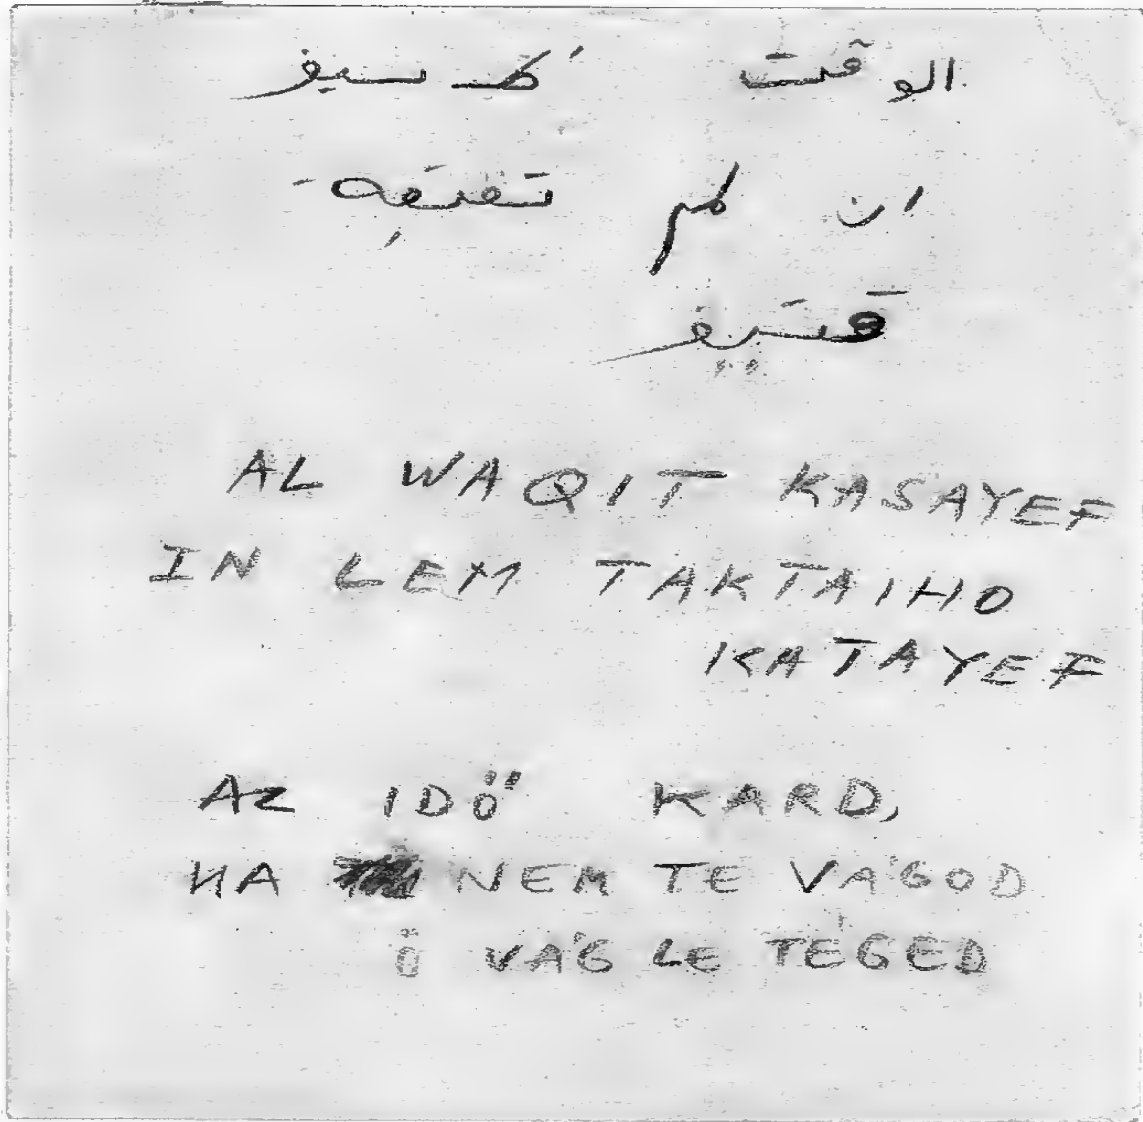 الوقت كسيف
ان لم تقتعه
قتيف
AL WAQIT KASAYEF
IN LEM TAKTAIHO
KATAYEF
AZ IDŐ KARD,
HA NEM TE VÁGOD
Ő VÁG LE TÉGED